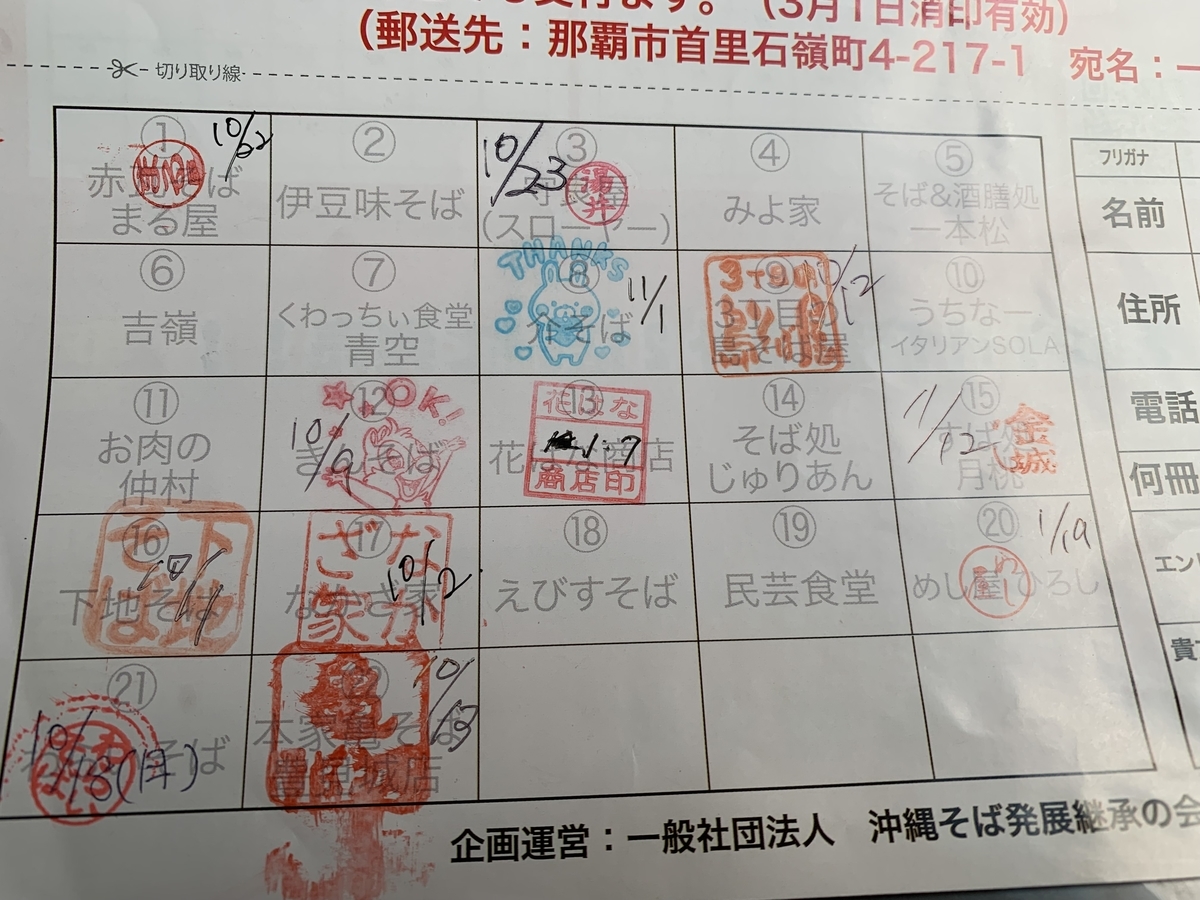 (3月1日消印有効)
(郵送先：那覇市首里石嶺町4-217-1　宛名：一
切り取り線
① 10/22
まる屋
②
伊豆味そば
③ 10/23
湯井
(スローヤー)
④
みよ家
⑤
そば&酒膳処
一本松
フリガナ
名前
⑥
吉嶺
⑦
くわっちぃ食堂
青空
THANKS
⑧
介そば
11/1
⑨
3丁目の
島そば屋
10/12
⑩
うちなー
イタリアンSOLA
住所
⑪
お肉の
仲村
⑫
OK!
10/9
⑬
花はな
商店
商店印
⑭
そば処
じゅりあん
⑮
月桃
11/12
金城
電話
何冊
⑯
下地そば
10/11
⑰
なかざ家
10/12
⑱
えびすそば
⑲
民芸食堂
⑳ 1/19
めし屋ひろし
エン
㉑
そば
10/13(月)
㉒
本家亀そば
豊見城店
10/13
企画運営：一般社団法人　沖縄そば発展継承の会